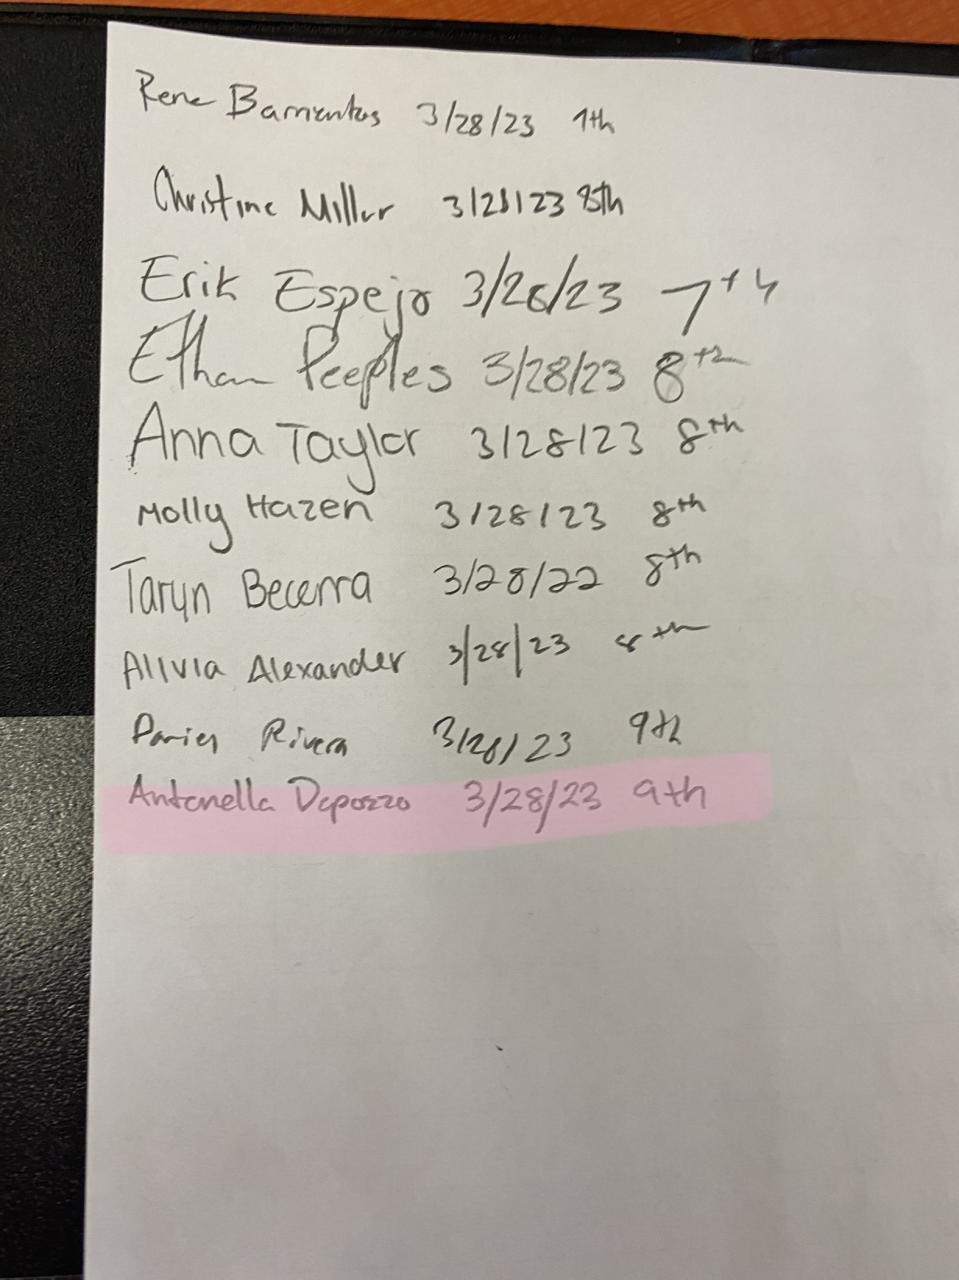 Rene Barrientos 3/28/23 7th
Christine Miller 3/28/23 8th
Erik Espejo 3/28/23 7th
Ethan Peeples 3/28/23 8th
Anna Taylor 3/28/23 8th
Molly Hazen 3/28/23 8th
Taryn Becerra 3/28/22 8th
Alivia Alexander 3/28/23 8th
Rivera 3/28/23 9th
Antonella Depozzo 3/28/23 9th